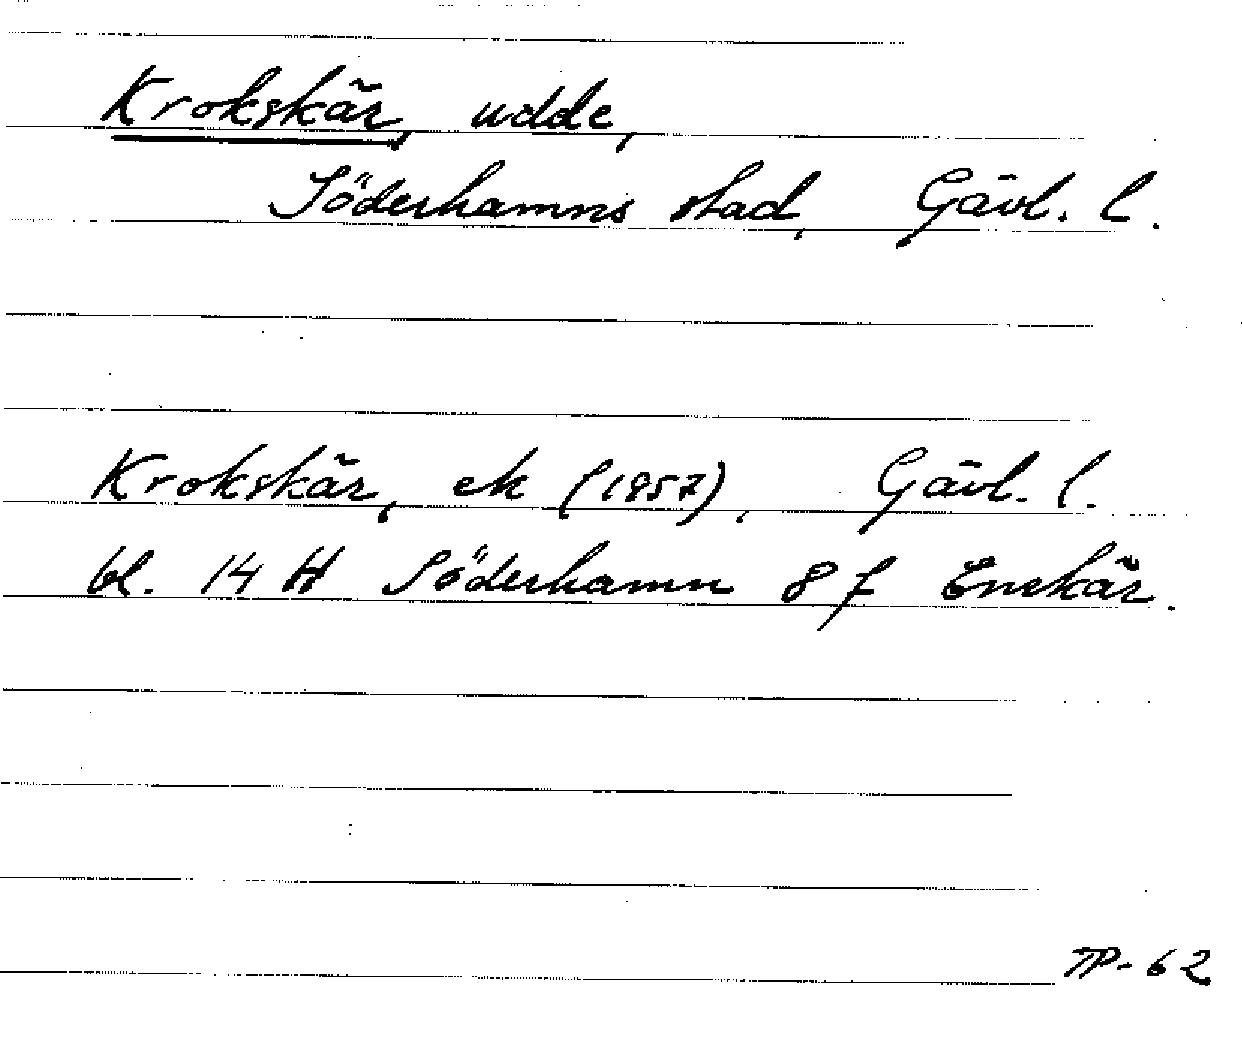 Krokskär, udde,
Söderhamns stad, Gävl. l.
Krokskär, ek (1957), Gävl. l.
bl. 14 H Söderhamn 8 f Enskär.
TP-62